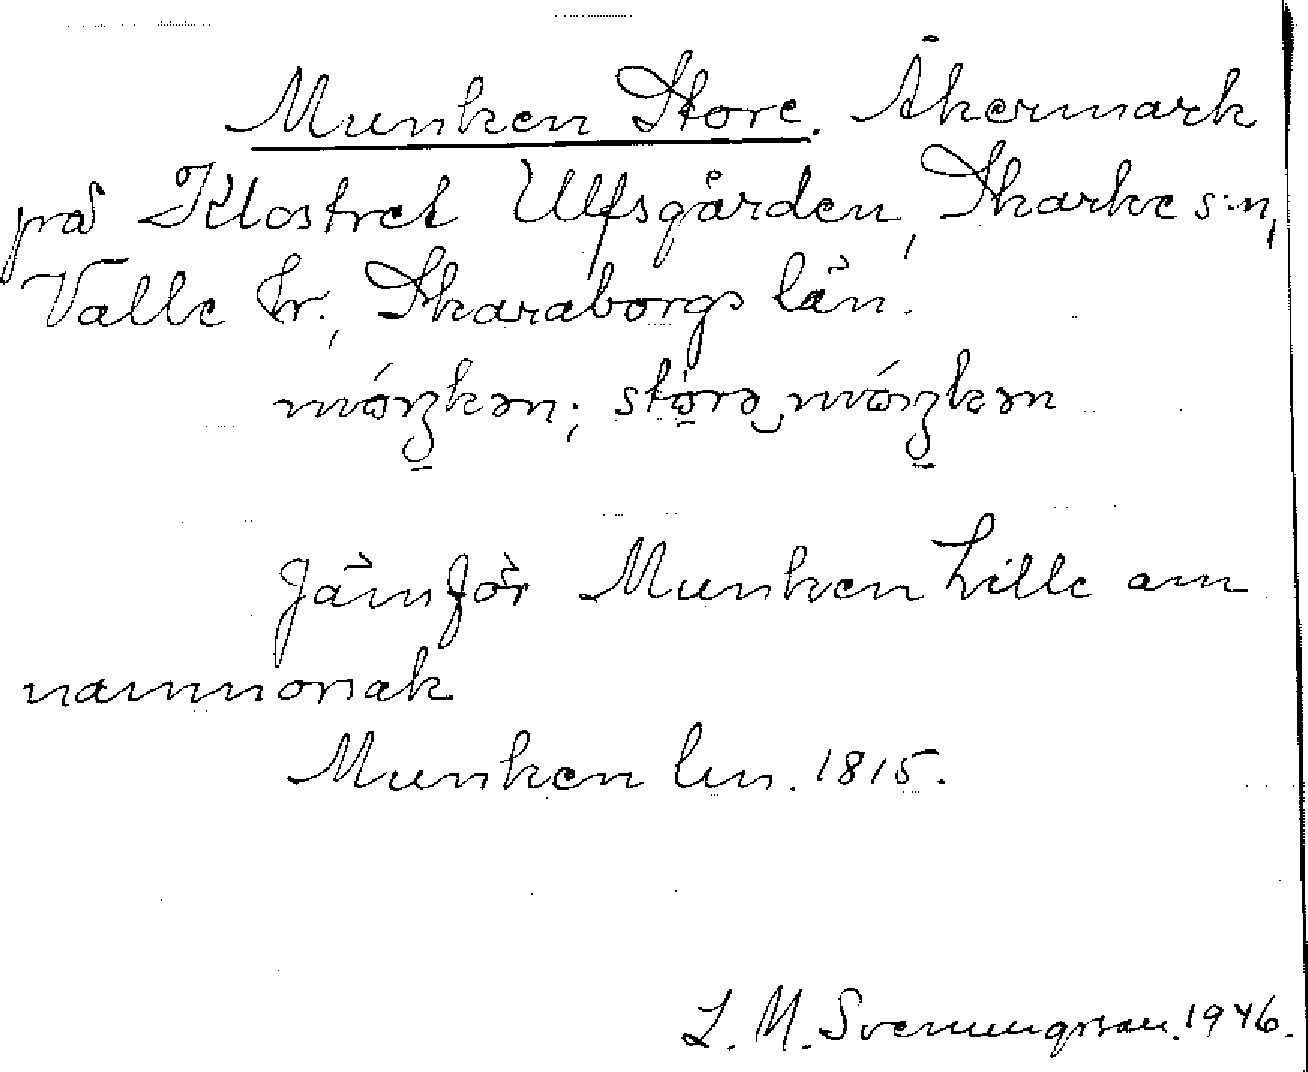 Munken Store. Åkermark
på Klostret Ulfsgården, Skarke s:n,
Valle hr., Skaraborgs län.
Jämför Munken Lille om
namnorsak
Munken lm. 1815.
L. M. Svenungsson. 1946.